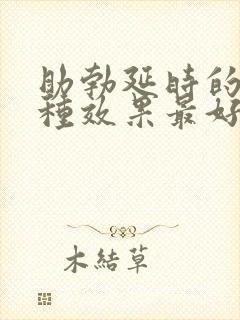 助勃延時的
種效果最好
木結草